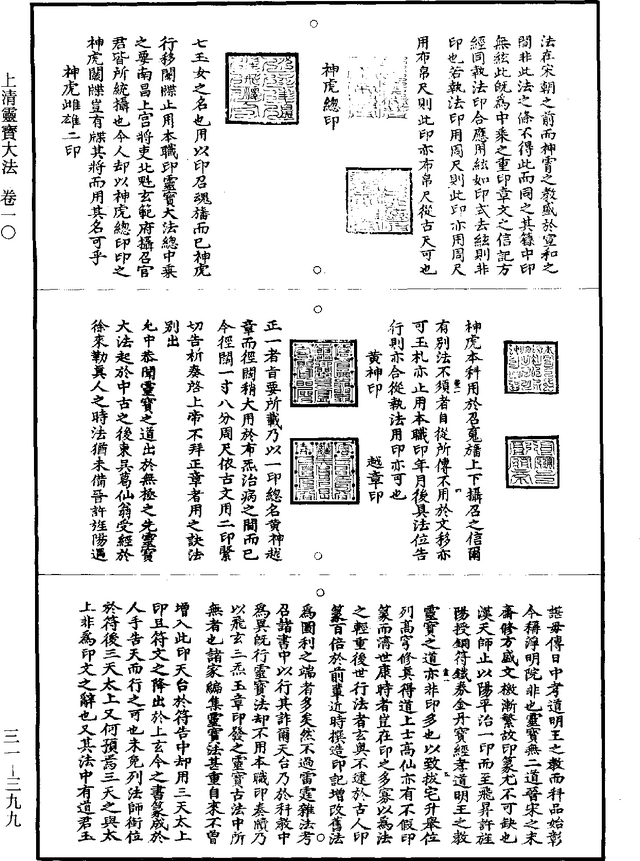 上清靈寶大法　卷一〇
三一－三九九
法在宋朝之前而神霄之教盛於宣和之
間非此法之條不得此而同之其籙中印
無絃此既為中乘之重印章文之信記方
經同執法印合應用絃如印式去絃則非
印也若執法印用周尺則此印亦用周尺
用布帛尺則此印亦布帛尺從古尺可也
神虎總印
七玉女之名也用以印召魂旛而已神虎
行移關牒止用本職印靈寶大法總中乘
之要南昌上宮將吏北魁玄範府攝召官
君皆所統攝也今人却以神虎總印印之
神虎關牒豈有牒其將而用其名可乎
神虎雌雄二印
神虎本科用於召䰟旛上下攝召之信爾
有別法不須者自從所傳不用於文移亦
可玉札亦止用本職印年月後具法位告
行則亦合從執法用印亦可也
黃神印　越章印
正一者首要所載乃以一印總名黃神越
章而徑闊稍大用於布炁治病之間而已
今徑闊一寸八分周尺依古文用二印緊
切告祈奏啓上帝不拜正章者用之訣法
別出
允中恭聞靈寶之道出於無極之先靈寶
大法起於中古之後東吳葛仙翁受經於
徐來勒真人之時法猶未備晉許旌陽遇
諶母傳日中孝道明王之教而科品始彰
今稱淨明院非也靈寶無二道晉宋之末
齋修方盛文檄漸繁故印篆尤不可缺也
漢天師止以陽平治一印而至飛昇許旌
陽授銅符鐵券金丹寶經孝道明王之教
靈寶之道亦非印多也以致拔宅升舉位
列高穹修真得道上士高仙亦有不假印
篆而濟世康時者豈在印之多寡以為法
之輕重後世行法者玄奧不逮於古人印
篆百倍於前輩近時撰造印記增改舊法
為圖利之端者多矣然不過雷霆雜法考
召諸書中以行其詐爾天台乃於科教中
為異既行靈寶法却不用本職印奏牘乃
以飛玄三炁玉章印發之靈寶古法中所
無者也諸家編集靈寶法甚重自來不曾
增入此印天台於符告中却用三天太上
印且符文之降出於上玄今之書篆成於
人手告天而行之可也未免列法師銜位
於符後三天太上又何預焉三天之與太
上非為印文之辭也又其法中有道君玉